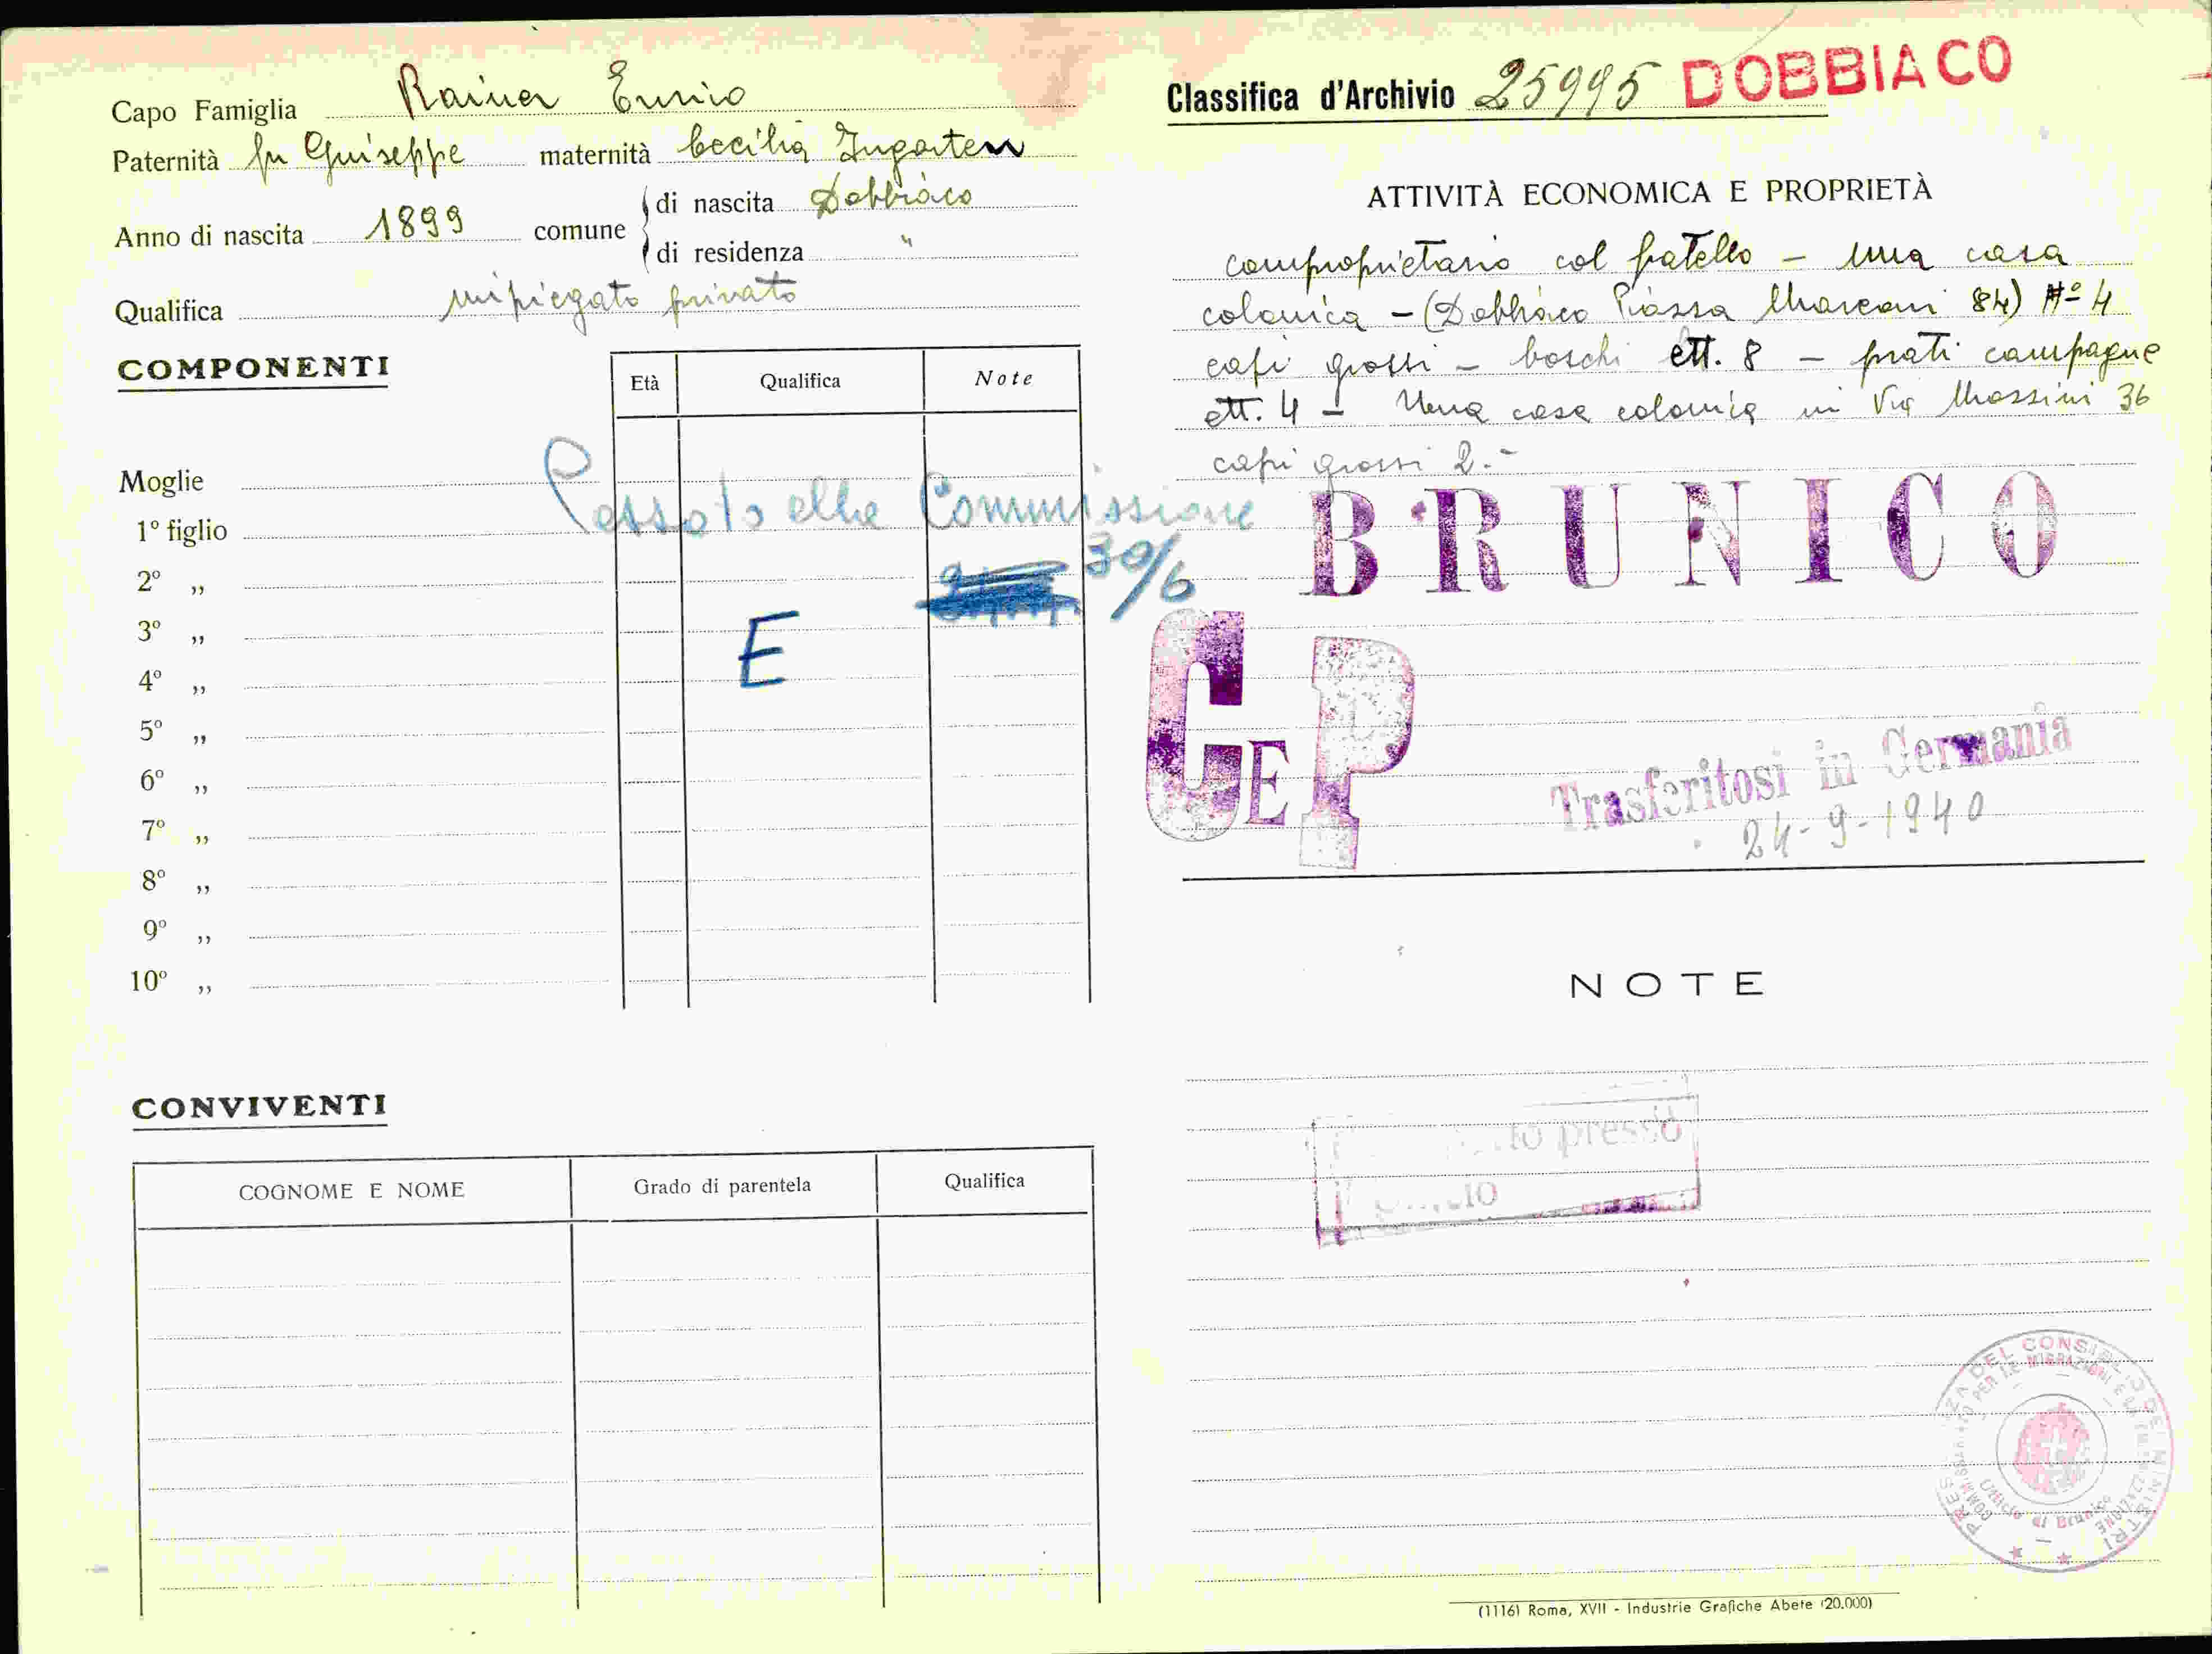 Capo Famiglia Rainer Enrico
Paternità fu Giuseppe maternità Cecilia Ingarten
Anno di nascita 1899 comune di nascita Dobbiaco
di residenza "
Qualifica impiegato privato
COMPONENTI
Età Qualifica Note
Moglie
1º figlio
2º „
3º „
4º „
5º „
6º „
7º „
8º „
9º „
10º „
Passato alla Commissione
30/6
E
CONVIVENTI
COGNOME E NOME Grado di parentela Qualifica
Classifica d'Archivio 25995 DOBBIACO
ATTIVITÀ ECONOMICA E PROPRIETÀ
comproprietario col fratello – una casa
colonica – (Dobbiaco Piazza Marconi 84) Nº 4
capi grossi – boschi ett. 8 – prati campagne
ett. 4 – Una casa colonica in Via Mazzini 36
capi grossi 2.-
BRUNICO
CEP
Trasferitosi in Germania
24-9-1940
NOTE
presso
PRESIDENZA DEL CONSIGLIO DEI MINISTRI
Ufficio di Brunico
(1116) Roma, XVII - Industrie Grafiche Abete (20.000)